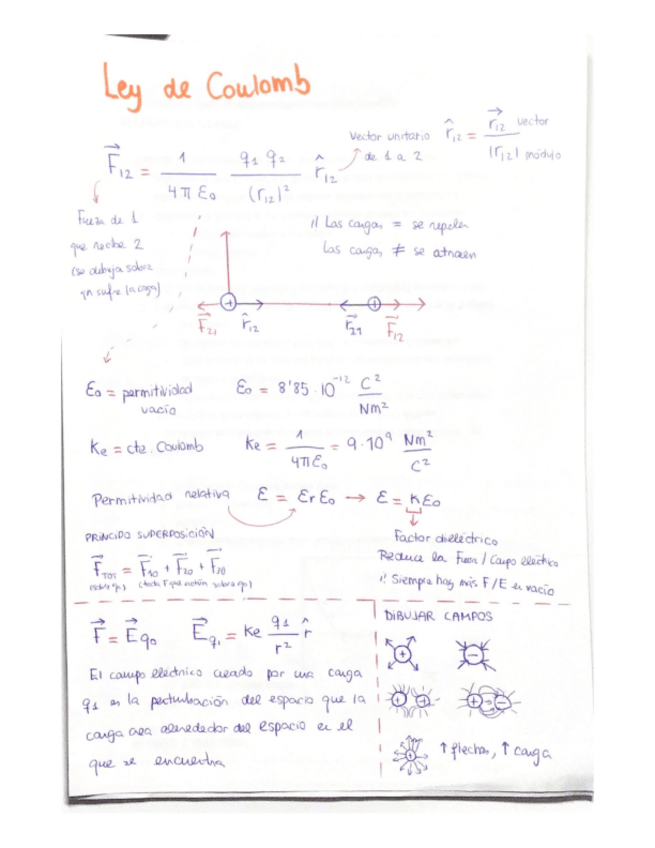 Ley de Coulomb
F⃗12 = 1/(4π Ɛo) q1 q2/(r12)² r̂12
Vector unitario de 1 a 2
r̂12 = r⃗12/|r12| vector módulo
Fuerza de 1
que recibe 2
(se dibuja sobre
qn sufre la carga)
!! Las cargas = se repelen
Las cargas ≠ se atraen
+ +
F⃗21 r̂12 r⃗21 F⃗12
Ɛo = permitividad vacío Ɛo = 8'85·10⁻¹² C²/Nm²
Ke = cte. Coulomb Ke = 1/(4πƐo) = 9·10⁹ Nm²/C²
Permitividad relativa Ɛ = Ɛr Ɛo → Ɛ = KƐo
Factor dieléctrico
Reduce la Fuerza/Campo eléctrico
!! Siempre hay más F/E en vacío
PRINCIPIO SUPERPOSICIÓN
F⃗TOT = F⃗10 + F⃗20 + F⃗30
(sobre qo) (cada F que actúa sobre qo)
F⃗ = E⃗ qo E⃗q1 = Ke q1/r² r̂
El campo eléctrico creado por una carga
q1 es la perturbación del espacio que la
carga crea alrededor del espacio en el
que se encuentra
DIBUJAR CAMPOS
+ -
+ + + -
+ ↑ flechas, ↑ carga